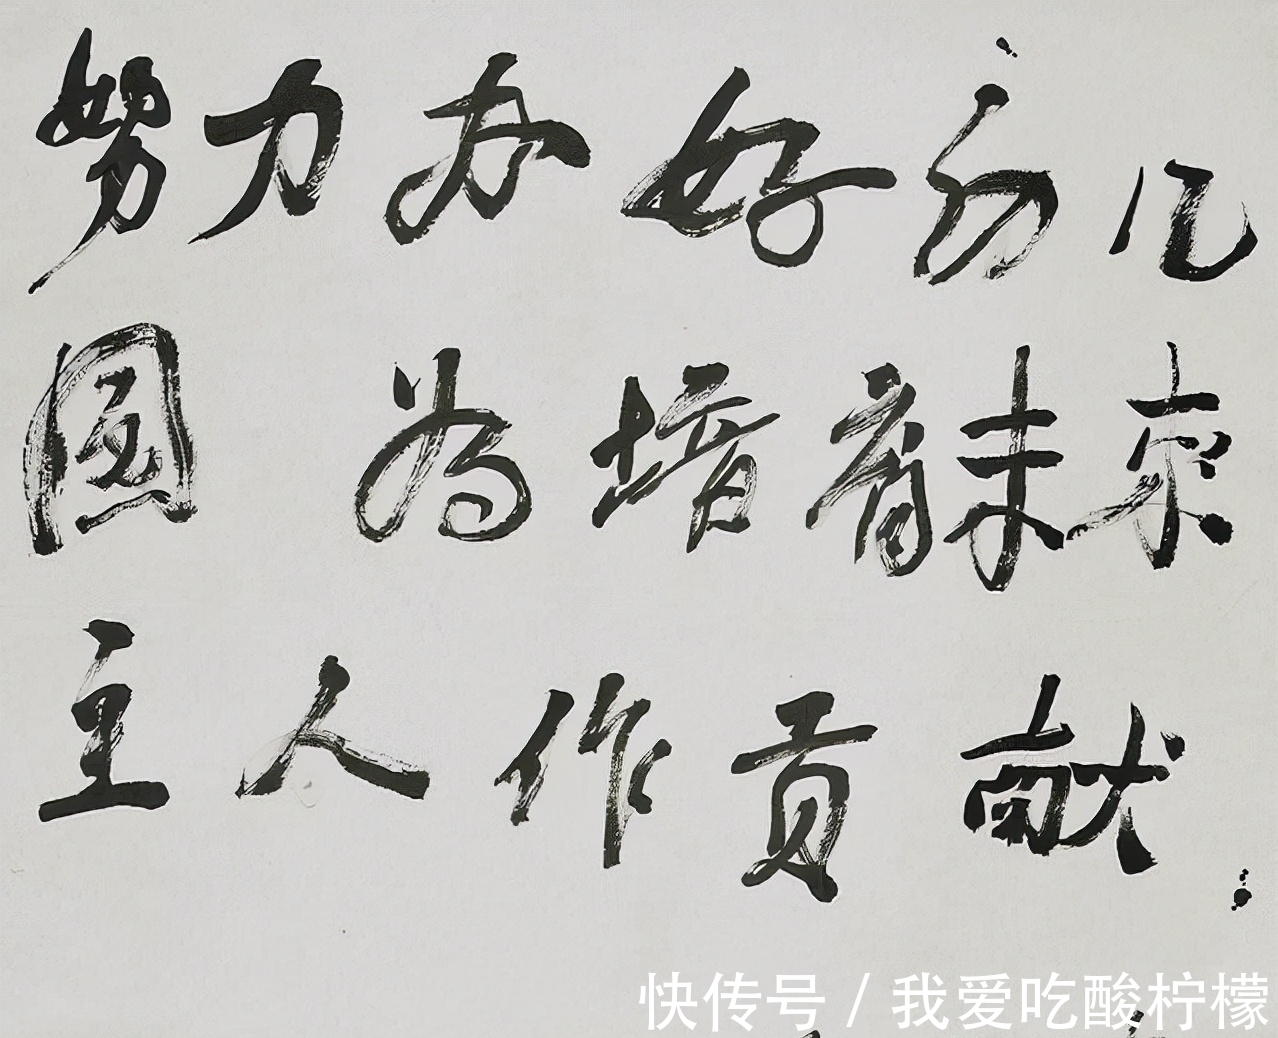 努力办好幼儿
园 为培育未来
主人作贡献
快传号 / 我爱吃酸柠檬